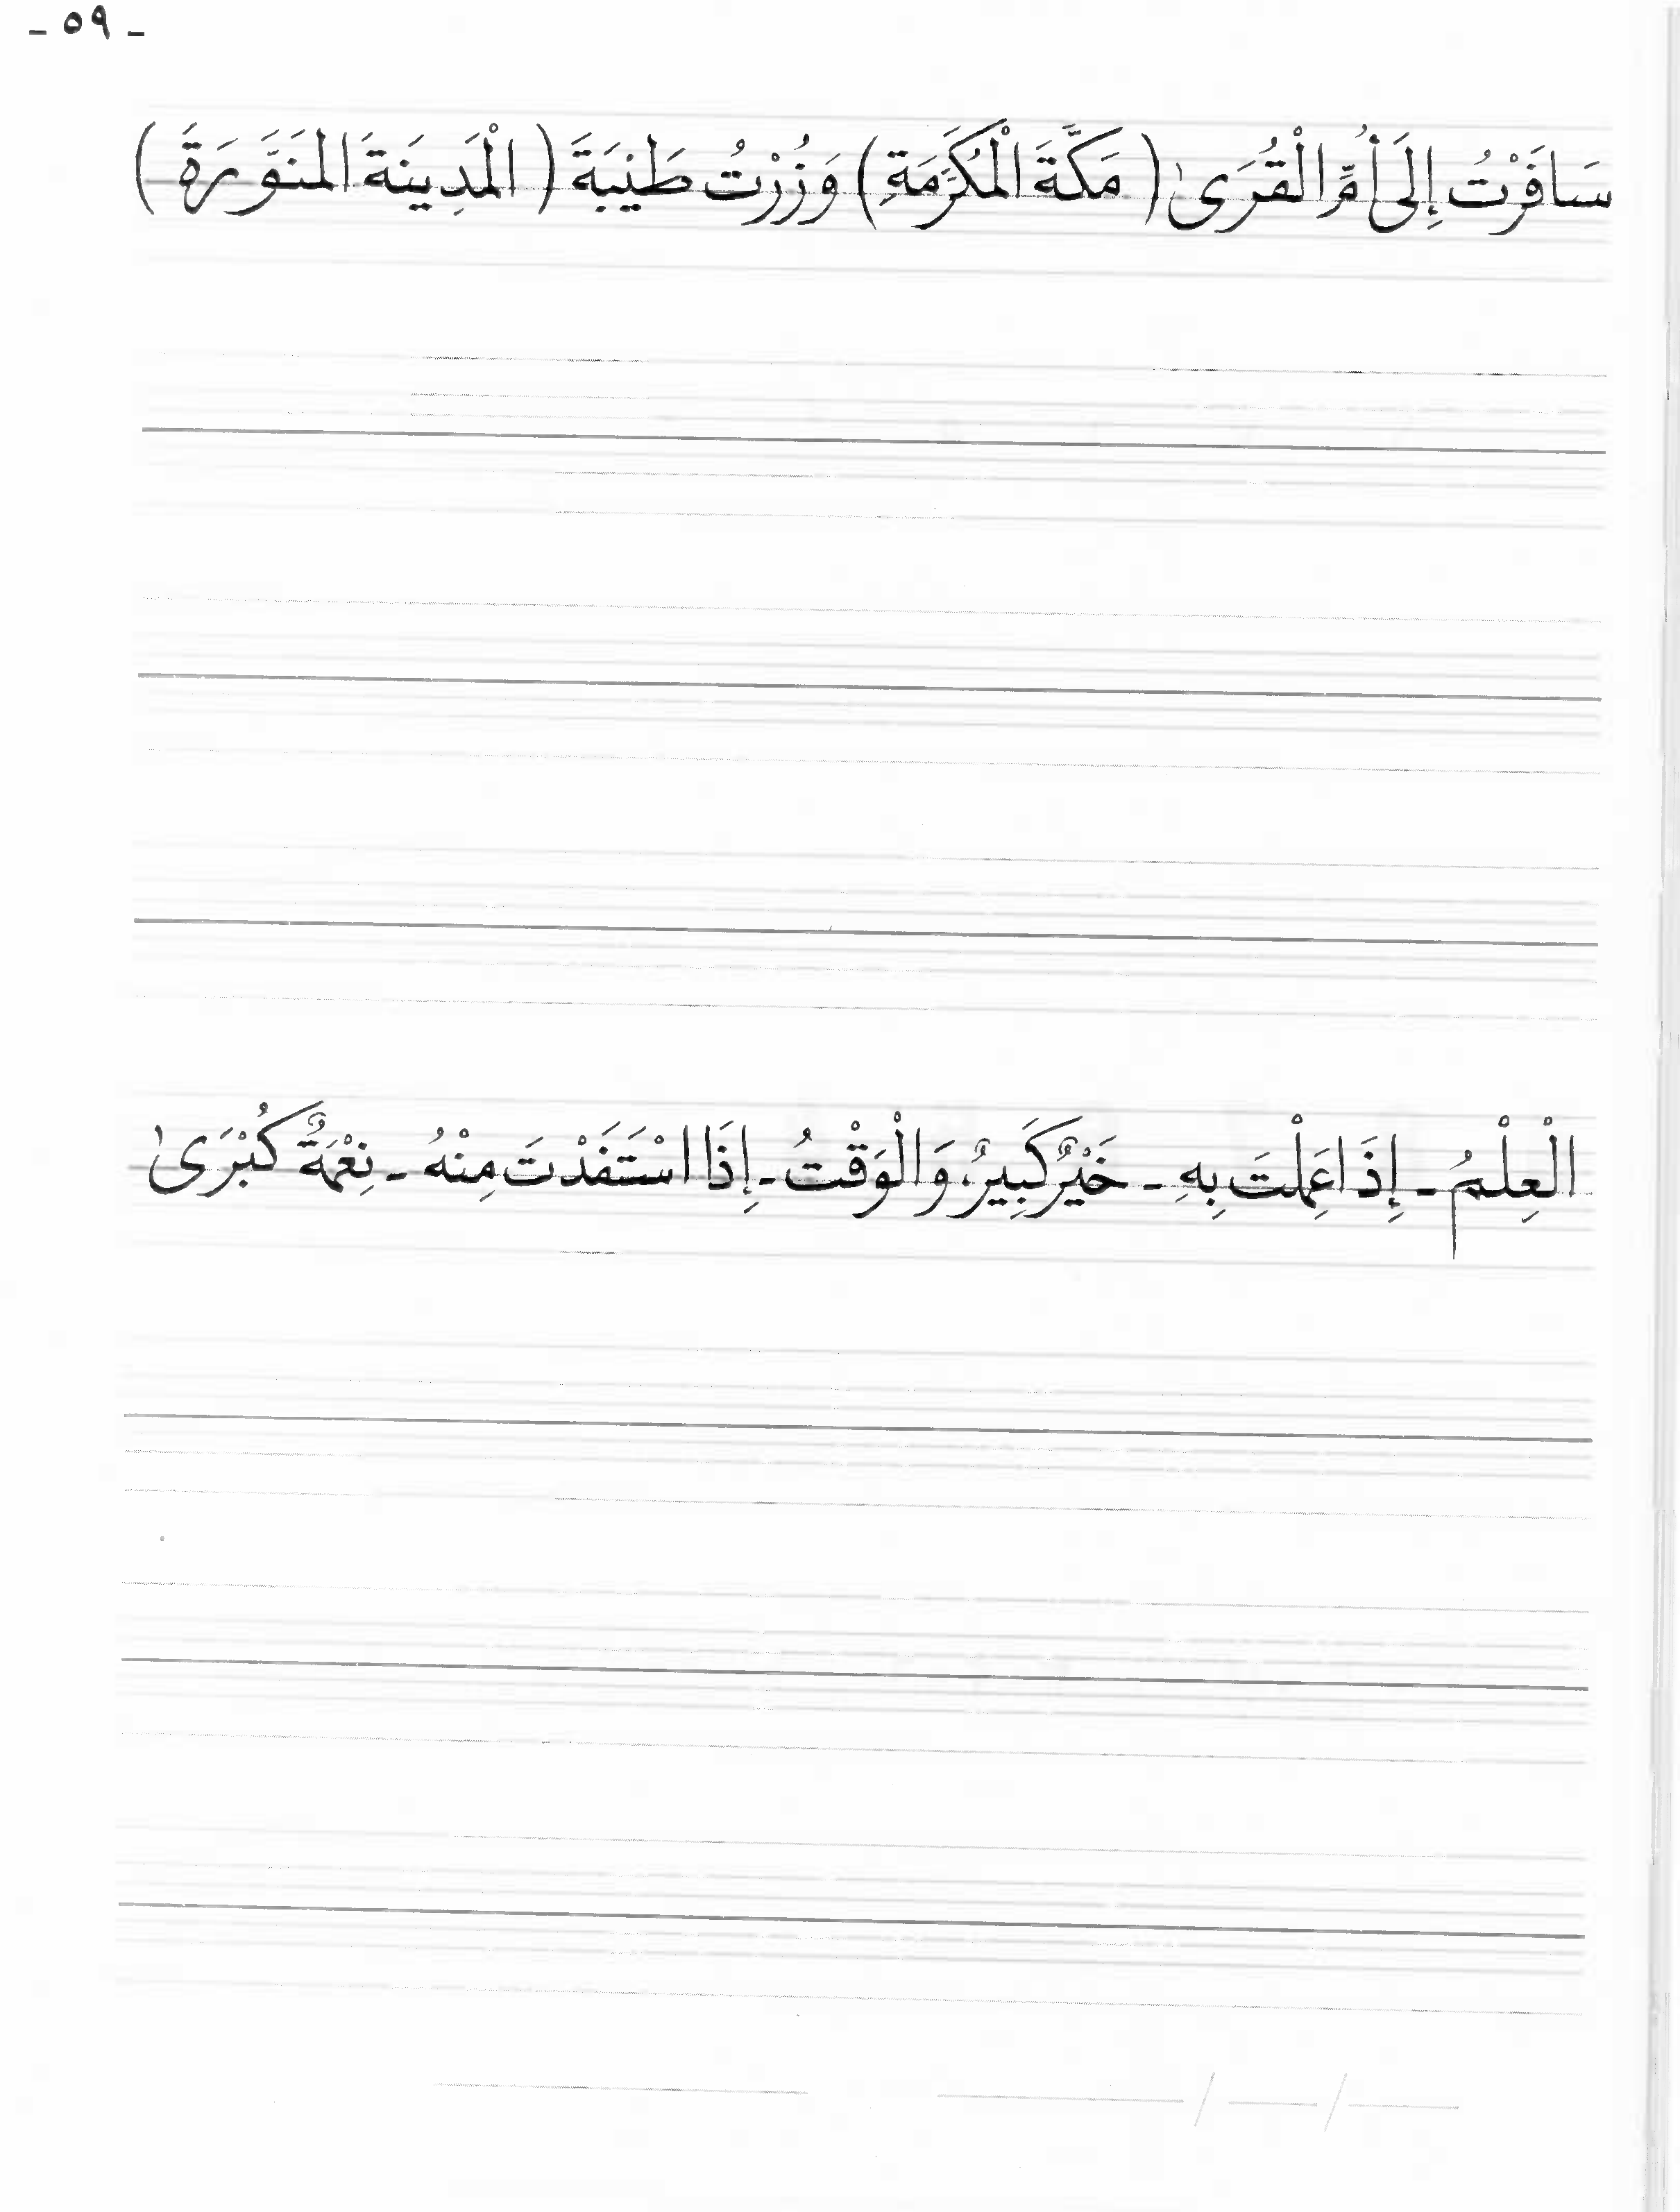 - ٥٩ -
سَافَرْتُ إِلَى أُمِّ الْقُرَىٰ ( مَكَّةَ الْمُكَرَّمَةِ ) وَزُرْتُ طَيْبَةَ ( الْمَدِينَةَ المَنَوَّرَةَ )
الْعِلْمُ - إِذَا عَمِلْتَ بِهِ - خَيْرٌ كَبِيرٌ، وَالْوَقْتُ - إِذَا اسْتَفَدْتَ مِنْهُ - نِعْمَةٌ كُبْرَىٰ